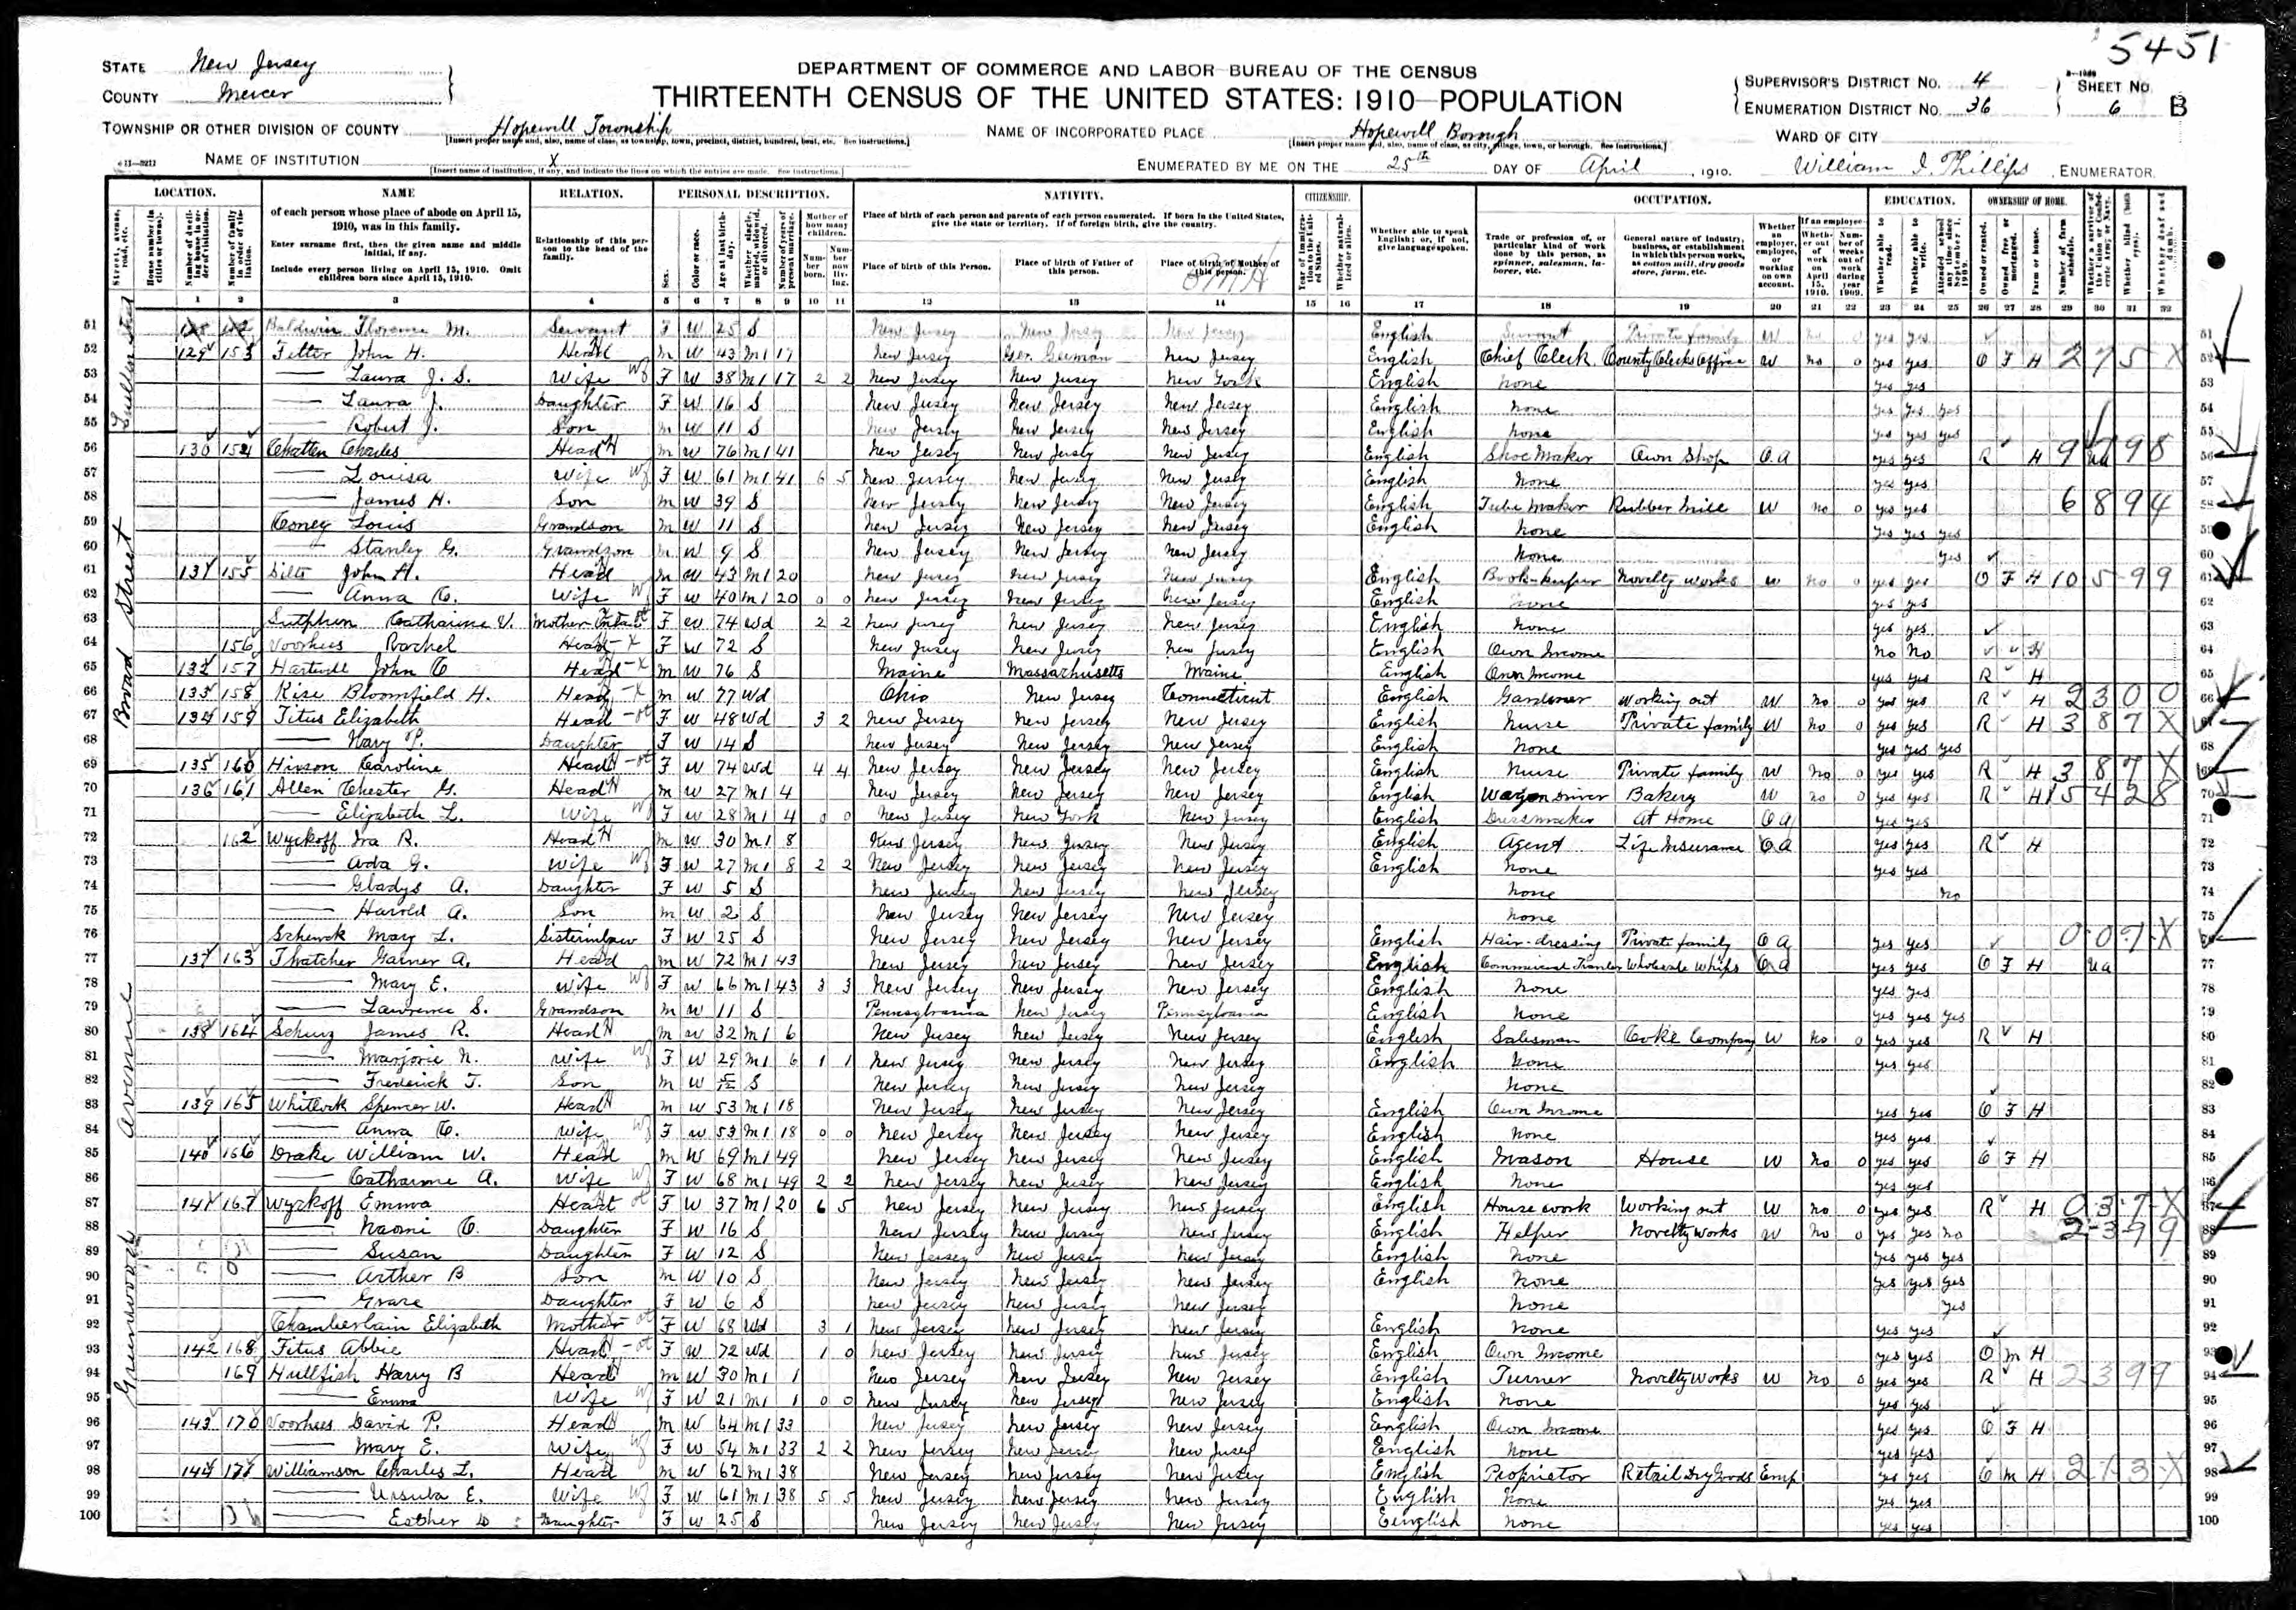 5451
STATE New Jersey
COUNTY Mercer
DEPARTMENT OF COMMERCE AND LABOR—BUREAU OF THE CENSUS
THIRTEENTH CENSUS OF THE UNITED STATES: 1910—POPULATION
SUPERVISOR'S DISTRICT No. 4
ENUMERATION DISTRICT No. 36
SHEET No. 6 B
TOWNSHIP OR OTHER DIVISION OF COUNTY Hopewell Township
[Insert proper name and, also, name of class, as township, town, precinct, district, hundred, beat, etc. See instructions.]
NAME OF INCORPORATED PLACE Hopewell Borough
[Insert proper name and, also, name of class, as city, village, town, or borough. See instructions.]
WARD OF CITY
NAME OF INSTITUTION X
[Insert name of institution, if any, and indicate the lines on which the entries are made. See instructions.]
ENUMERATED BY ME ON THE 25th DAY OF April, 1910.
William I. Phillips, ENUMERATOR.
LOCATION. NAME RELATION. PERSONAL DESCRIPTION. NATIVITY. CITIZENSHIP. OCCUPATION. EDUCATION. OWNERSHIP OF HOME.
of each person whose place of abode on April 15, 1910, was in this family.
Enter surname first, then the given name and middle initial, if any.
Include every person living on April 15, 1910. Omit children born since April 15, 1910.
Relationship of this person to the head of the family.
Place of birth of each person and parents of each person enumerated. If born in the United States, give the state or territory. If of foreign birth, give the country.
Place of birth of this Person. Place of birth of Father of this person. Place of birth of Mother of this person.
Whether able to speak English; or, if not, give language spoken.
Trade or profession of, or particular kind of work done by this person, as spinner, salesman, laborer, etc.
General nature of industry, business, or establishment in which this person works, as cotton mill, dry goods store, farm, etc.
1 2 3 4 5 6 7 8 9 10 11 12 13 14 15 16 17 18 19 20 21 22 23 24 25 26 27 28 29 30 31 32
Broad Street
Greenwood Avenue
51 Baldwin Florence M. Servant F W 25 S New Jersey New Jersey New Jersey English Servant Private family W yes yes
52 129 153 John H. Head M W 43 M1 17 New Jersey Ger. German New Jersey English Chief Clerk County Clerks Office W no 0 yes yes O F H 275X
53 Laura J. S. Wife F W 38 M1 17 2 2 New Jersey New Jersey New York English None yes yes
54 Laura J. Daughter F W 16 S New Jersey New Jersey New Jersey English None yes yes yes
55 Robert J. Son M W 11 S New Jersey New Jersey New Jersey English None yes yes yes
56 130 154 Chatten Charles Head M W 76 M1 41 New Jersey New Jersey New Jersey English Shoe Maker Own Shop O.A yes yes R H
57 Louisa Wife F W 61 M1 41 6 5 New Jersey New Jersey New Jersey English None yes yes
58 James H. Son M W 39 S New Jersey New Jersey New Jersey English Tube Maker Rubber Mill W no 0 yes yes 6894
59 Coney Louis Grandson M W 11 S New Jersey New Jersey New Jersey English None yes yes yes
60 Stanley G. Grandson M W 9 S New Jersey New Jersey New Jersey None yes
61 131 155 John H. Head M W 43 M1 20 New Jersey New Jersey New Jersey English Book-keeper Novelty works W no 0 yes yes O F H 10599
62 Anna C. Wife F W 40 M1 20 0 0 New Jersey New Jersey New Jersey English None yes yes
63 Sutphen Catharine V. Mother F W 74 Wd 2 2 New Jersey New Jersey New Jersey English None yes yes
64 156 Voorhees Rachel Head F W 72 S New Jersey New Jersey New Jersey English Own Income No No H
65 132 157 Hartwell John C Head M W 76 S Maine Massachusetts Maine English Own Income yes yes R H
66 133 158 Kise Bloomfield H. Head M W 77 Wd Ohio New Jersey Connecticut English Gardener Working out W no 0 yes yes R H 2300
67 134 159 Titus Elizabeth Head F W 48 Wd 3 2 New Jersey New Jersey New Jersey English Nurse Private family W no 0 yes yes R H 387X
68 Mary P. Daughter F W 14 S New Jersey New Jersey New Jersey English None yes yes yes
69 135 160 Hixson Caroline Head F W 74 Wd 4 4 New Jersey New Jersey New Jersey English Nurse Private family W No 0 yes yes R H 387X
70 136 161 Allen Chester G. Head M W 27 M1 4 New Jersey New Jersey New Jersey English Wagon Driver Bakery W no 0 yes yes R H 15428
71 Elizabeth L. Wife F W 28 M1 4 0 0 New Jersey New York New Jersey English Dressmaker At Home O A yes yes
72 162 Wyckoff Ira R. Head M W 30 M1 8 New Jersey New Jersey New Jersey English Agent Life Insurance O A yes yes R H
73 Ada G. Wife F W 27 M1 8 2 2 New Jersey New Jersey New Jersey English None yes yes
74 Gladys A. Daughter F W 5 S New Jersey New Jersey New Jersey None No
75 Harold A. Son M W 2 S New Jersey New Jersey New Jersey None
76 Schenck Mary L. Sisterinlaw F W 25 S New Jersey New Jersey New Jersey English Hair-dressing Private family O A yes yes
77 137 163 Thatcher Garner A. Head M W 72 M1 43 New Jersey New Jersey New Jersey English Commercial Traveler Wholesale Whips O A yes yes O F H UA
78 Mary E. Wife F W 66 M1 43 3 3 New Jersey New Jersey New Jersey English None yes yes
79 Lawrence S. Grandson M W 11 S Pennsylvania New Jersey Pennsylvania English None yes yes yes
80 138 164 James R. Head M W 32 M1 6 New Jersey New Jersey New Jersey English Salesman Coke Company W No 0 yes yes R H
81 Marjorie N. Wife F W 29 M1 6 1 1 New Jersey New Jersey New Jersey English None yes yes
82 Frederick T. Son M W S New Jersey New Jersey New Jersey None
83 139 165 Whitlock Spencer W. Head M W 53 M1 18 New Jersey New Jersey New Jersey English Own Income yes yes O F H
84 Anna C. Wife F W 53 M1 18 0 0 New Jersey New Jersey New Jersey English None yes yes
85 140 166 Drake William W. Head M W 69 M1 49 New Jersey New Jersey New Jersey English Mason House W No 0 yes yes O F H
86 Catharine A. Wife F W 68 M1 49 2 2 New Jersey New Jersey New Jersey English None yes yes
87 141 167 Wyckoff Emma Head F W 37 M1 20 6 5 New Jersey New Jersey New Jersey English House work Working out W no 0 yes yes R H 037X
88 Naomi C. Daughter F W 16 S New Jersey New Jersey New Jersey English Helper Novelty Works W No 0 yes yes no 2399
89 Susan Daughter F W 12 S New Jersey New Jersey New Jersey English None yes yes yes
90 Arther B Son M W 10 S New Jersey New Jersey New Jersey English None yes yes yes
91 Grace Daughter F W 6 S New Jersey New Jersey New Jersey None yes
92 Chamberlain Elizabeth Mother F W 68 Wd 3 1 New Jersey New Jersey New Jersey English None yes yes
93 142 168 Titus Abbie Head F W 72 Wd 1 0 New Jersey New Jersey New Jersey English Own Income yes yes O M H
94 169 Hullfish Harry B Head M W 30 M1 1 New Jersey New Jersey New Jersey English Turner Novelty Works W No 0 yes yes R H 2399
95 Emma Wife F W 21 M1 1 0 0 New Jersey New Jersey New Jersey English None yes yes
96 143 170 Voorhees David P. Head M W 64 M1 33 New Jersey New Jersey New Jersey English Own Income yes yes O F H
97 Mary E. Wife F W 54 M1 33 2 2 New Jersey New Jersey New Jersey English None yes yes
98 144 171 Williamson Charles L. Head M W 62 M1 38 New Jersey New Jersey New Jersey English Proprietor Retail Dry Goods Emp yes yes O M H
99 Ursula E. Wife F W 61 M1 38 5 5 New Jersey New Jersey New Jersey English None yes yes
100 Esther Daughter F W 25 S New Jersey New Jersey New Jersey English None yes yes